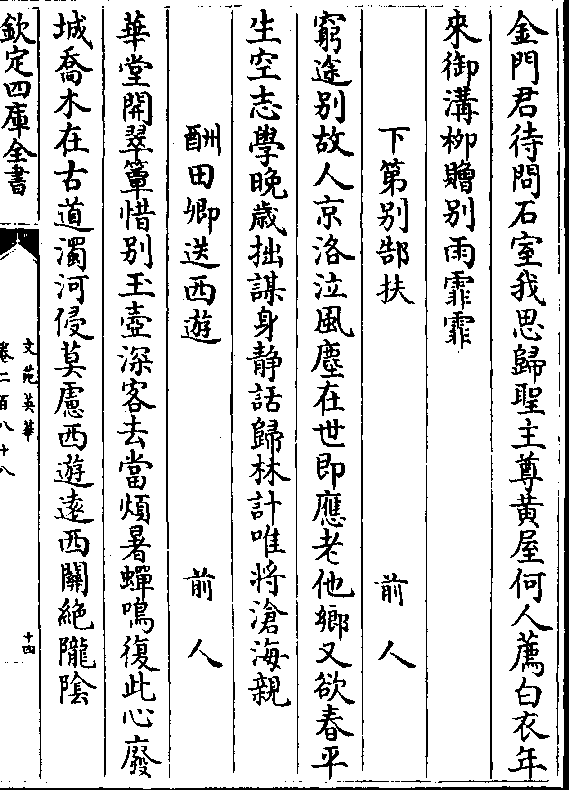 金門君待問石室我思歸聖主尊黄屋何人薦白衣年
來御溝栁贈别雨霏霏
下第别郜扶　前人
窮途别故人京洛泣風塵在世即應老他郷又欲春平
生空志學晚歳拙謀身静話歸林計唯將滄海親
酬田卿送西遊　前人
華堂開翠簟惜别玉壺深客去當煩暑蟬鳴復此心廢
城喬木在古道濁河侵莫慮西遊逺西關絶隴隂
欽定四庫全書
文苑英華
卷二百八十八
十四